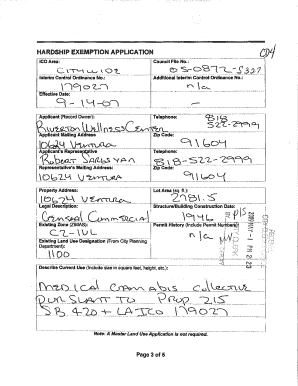 HARDSHIP EXEMPTION APPLICATION
CD4
ICO Area: Council File No.:
CITYWIDE 05-0872-S327
Interim Control Ordinance No.: Additional Interim Control Ordinance No.:
179027 n/a
Effective Date:
9-14-07 —
Applicant (Record Owner): Telephone:
Riverton Wellness Center 818 522-2999
Applicant Mailing Address Zip Code:
10624 Ventura 91604
Applicant's Representative Telephone:
Robert Sarkisyan 818-522-2999
Representative's Mailing Address Zip Code:
10624 Ventura 91604
Property Address: Lot Area (sq. ft.)
10624 Ventura 2781.5
Legal Description: Structure/Building Construction Date:
General Commercial 1946
Existing Zone (ZIMAS): Permit History (Include Permit Numbers):
C2-1VL n/a
Existing Land Use Designation (From City Planning
Department):
1100
Describe Current Use (Include size in square feet, height, etc.):
Medical Cannabis Collective
Pursuant to Prop 215
SB 420 + LA ICO 179027
Note: A Master Land Use Application is not required.
Page 3 of 5